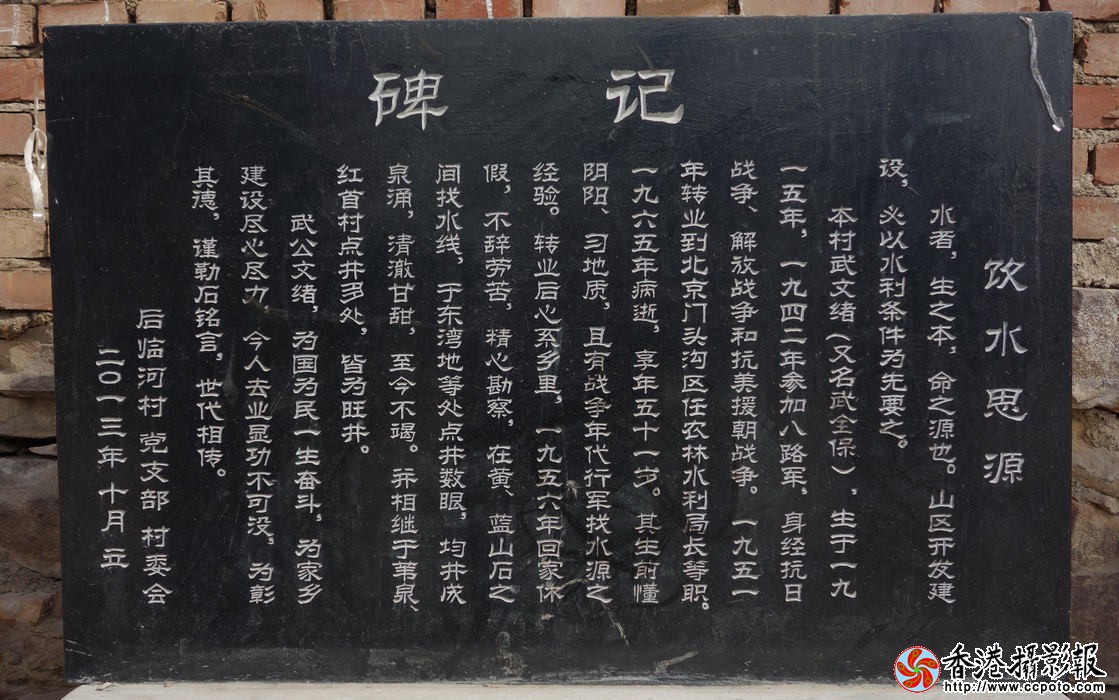 碑记
饮水思源
水者，生之本，命之源也。山区开发建
设，必以水利条件为先要之。
本村武文绪（又名武全保），生于一九
一五年，一九四二年参加八路军，身经抗日
战争、解放战争和抗美援朝战争。一九五一
年转业到北京门头沟区任农林水利局长等职。
一九六五年病逝，享年五十一岁。其生前懂
阴阳、习地质，且有战争年代行军找水源之
经验。转业后心系乡里，一九五六年回家休
假，不辞劳苦，精心勘察，在黄、蓝山石之
间找水线，于东湾地等处点井数眼，均井成
泉涌，清澈甘甜，至今不竭。并相继于苇泉、
红首村点井多处，皆为旺井。
武公文绪，为国为民一生奋斗，为家乡
建设尽心尽力，今人去业显功不可没。为彰
其德，谨勒石铭言，世代相传。
后临河村 党支部 村委会
二〇一三年十月立
香港攝影報
http://www.ccpoto.com